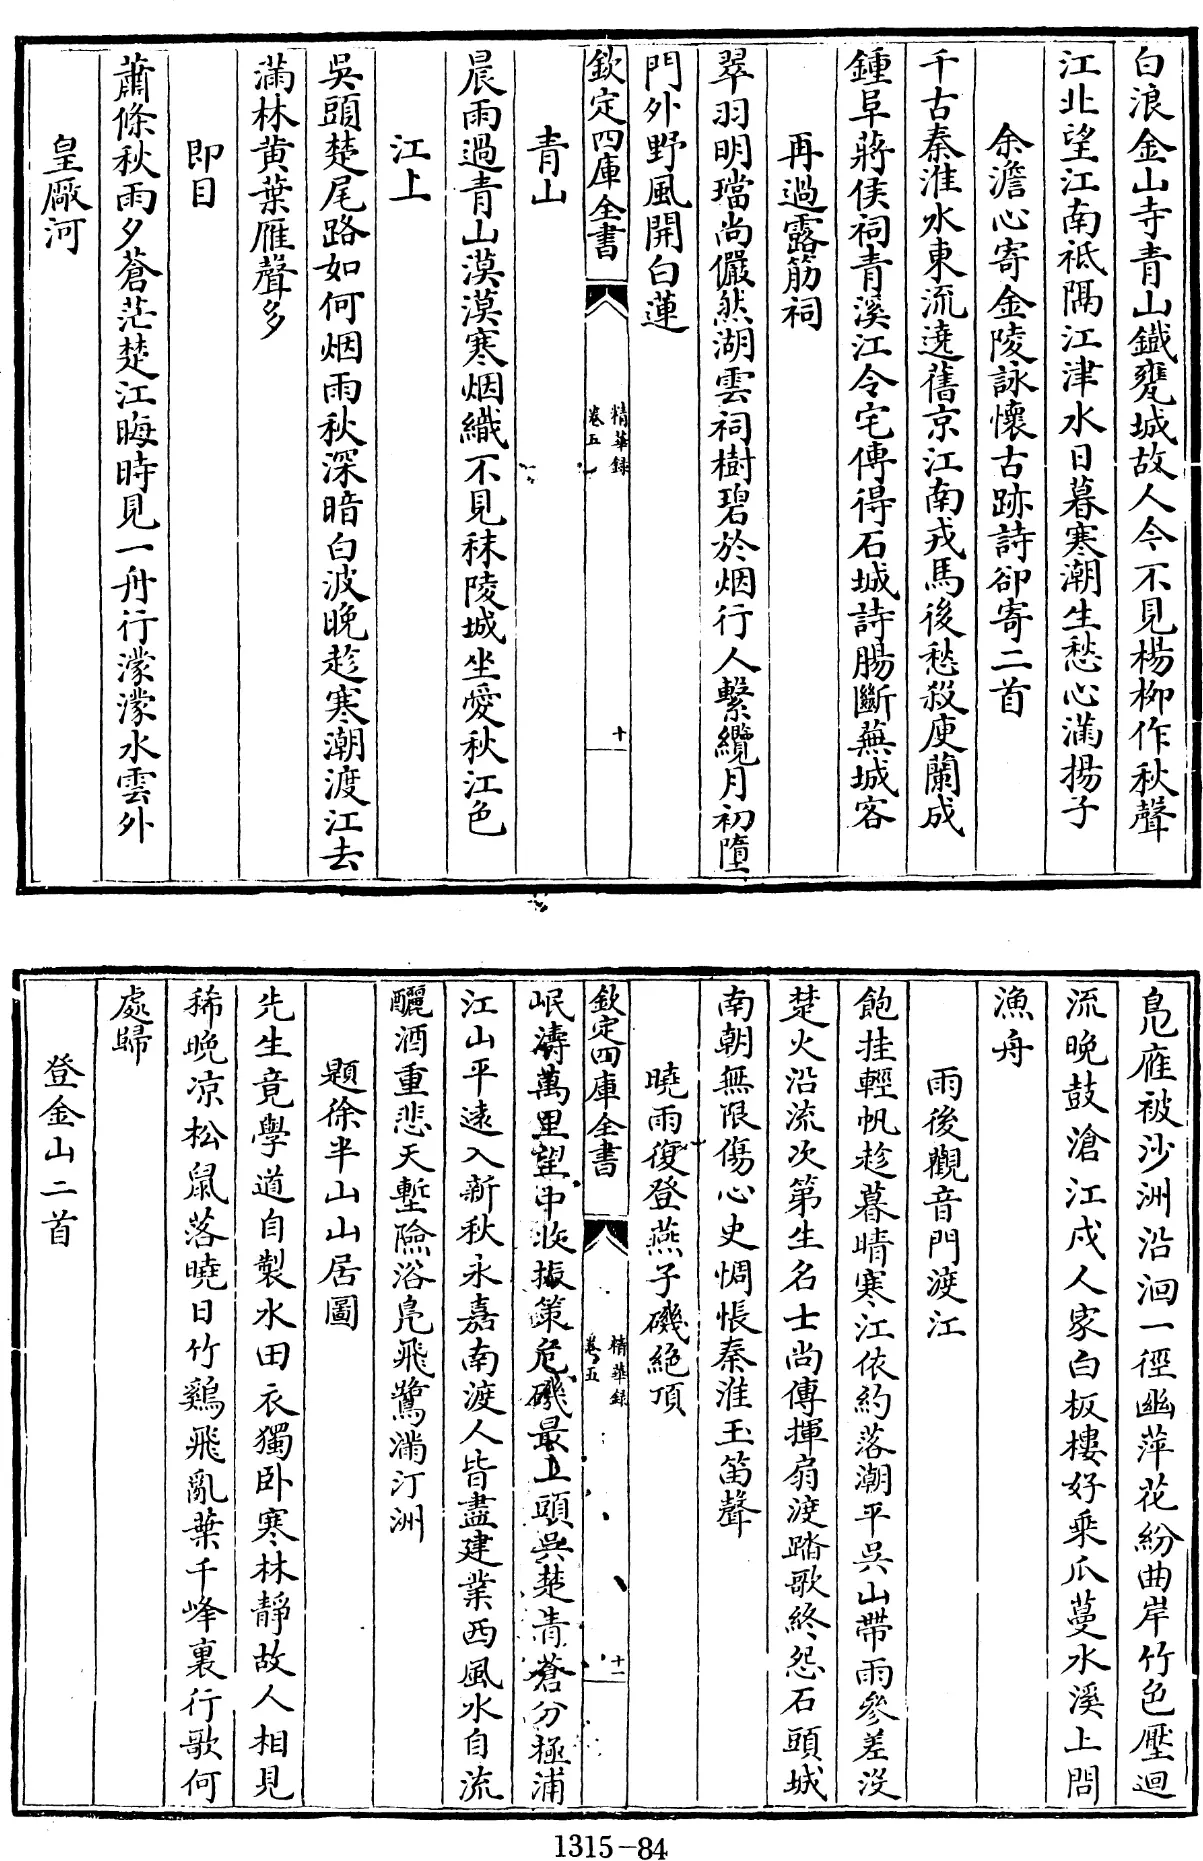 白浪金山寺青山鐵甕城故人今不見楊柳作秋聲
江北望江南祗隅江津水日暮寒潮生愁心滿揚子
余澹心寄金陵詠懷古跡詩卻寄二首
千古秦淮水東流遶舊京江南戎馬後愁殺庾蘭成
鍾阜蔣侯祠青溪江令宅傳得石城詩腸斷蕪城客
再過露筋祠
翠羽明璫尚儼然湖雲祠樹碧於烟行人繫纜月初墮
門外野風開白蓮
欽定四庫全書
精華録
卷五
十
青山
晨雨過青山漠漠寒烟織不見秣陵城坐愛秋江色
江上
吳頭楚尾路如何烟雨秋深暗白波晚趁寒潮渡江去
滿林黄葉雁聲多
即目
蕭條秋雨夕蒼茫楚江晦時見一舟行濛濛水雲外
皇廠河
鳧雁被沙洲沿洄一徑幽萍花紛曲岸竹色壓迴
流晚鼓滄江戍人家白板樓好乘爪蔓水溪上問
漁舟
雨後觀音門渡江
飽挂輕帆趁暮晴寒江依約落潮平吳山帶雨參差没
楚火沿流次第生名士尚傳揮扇渡踏歌終怨石頭城
南朝無限傷心史惆悵秦淮玉笛聲
曉雨復登燕子磯絶頂
欽定四庫全書
精華録
卷五
十一
岷濤萬里望中收振策危磯最上頭吳楚青蒼分極浦
江山平遠入新秋永嘉南渡人皆盡建業西風水自流
釃酒重悲天塹險浴鳧飛鷺滿汀洲
題徐半山山居圖
先生竟學道自製水田衣獨卧寒林靜故人相見
稀晚凉松鼠落曉日竹鷄飛亂葉千峰裏行歌何
處歸
登金山二首
1315-84